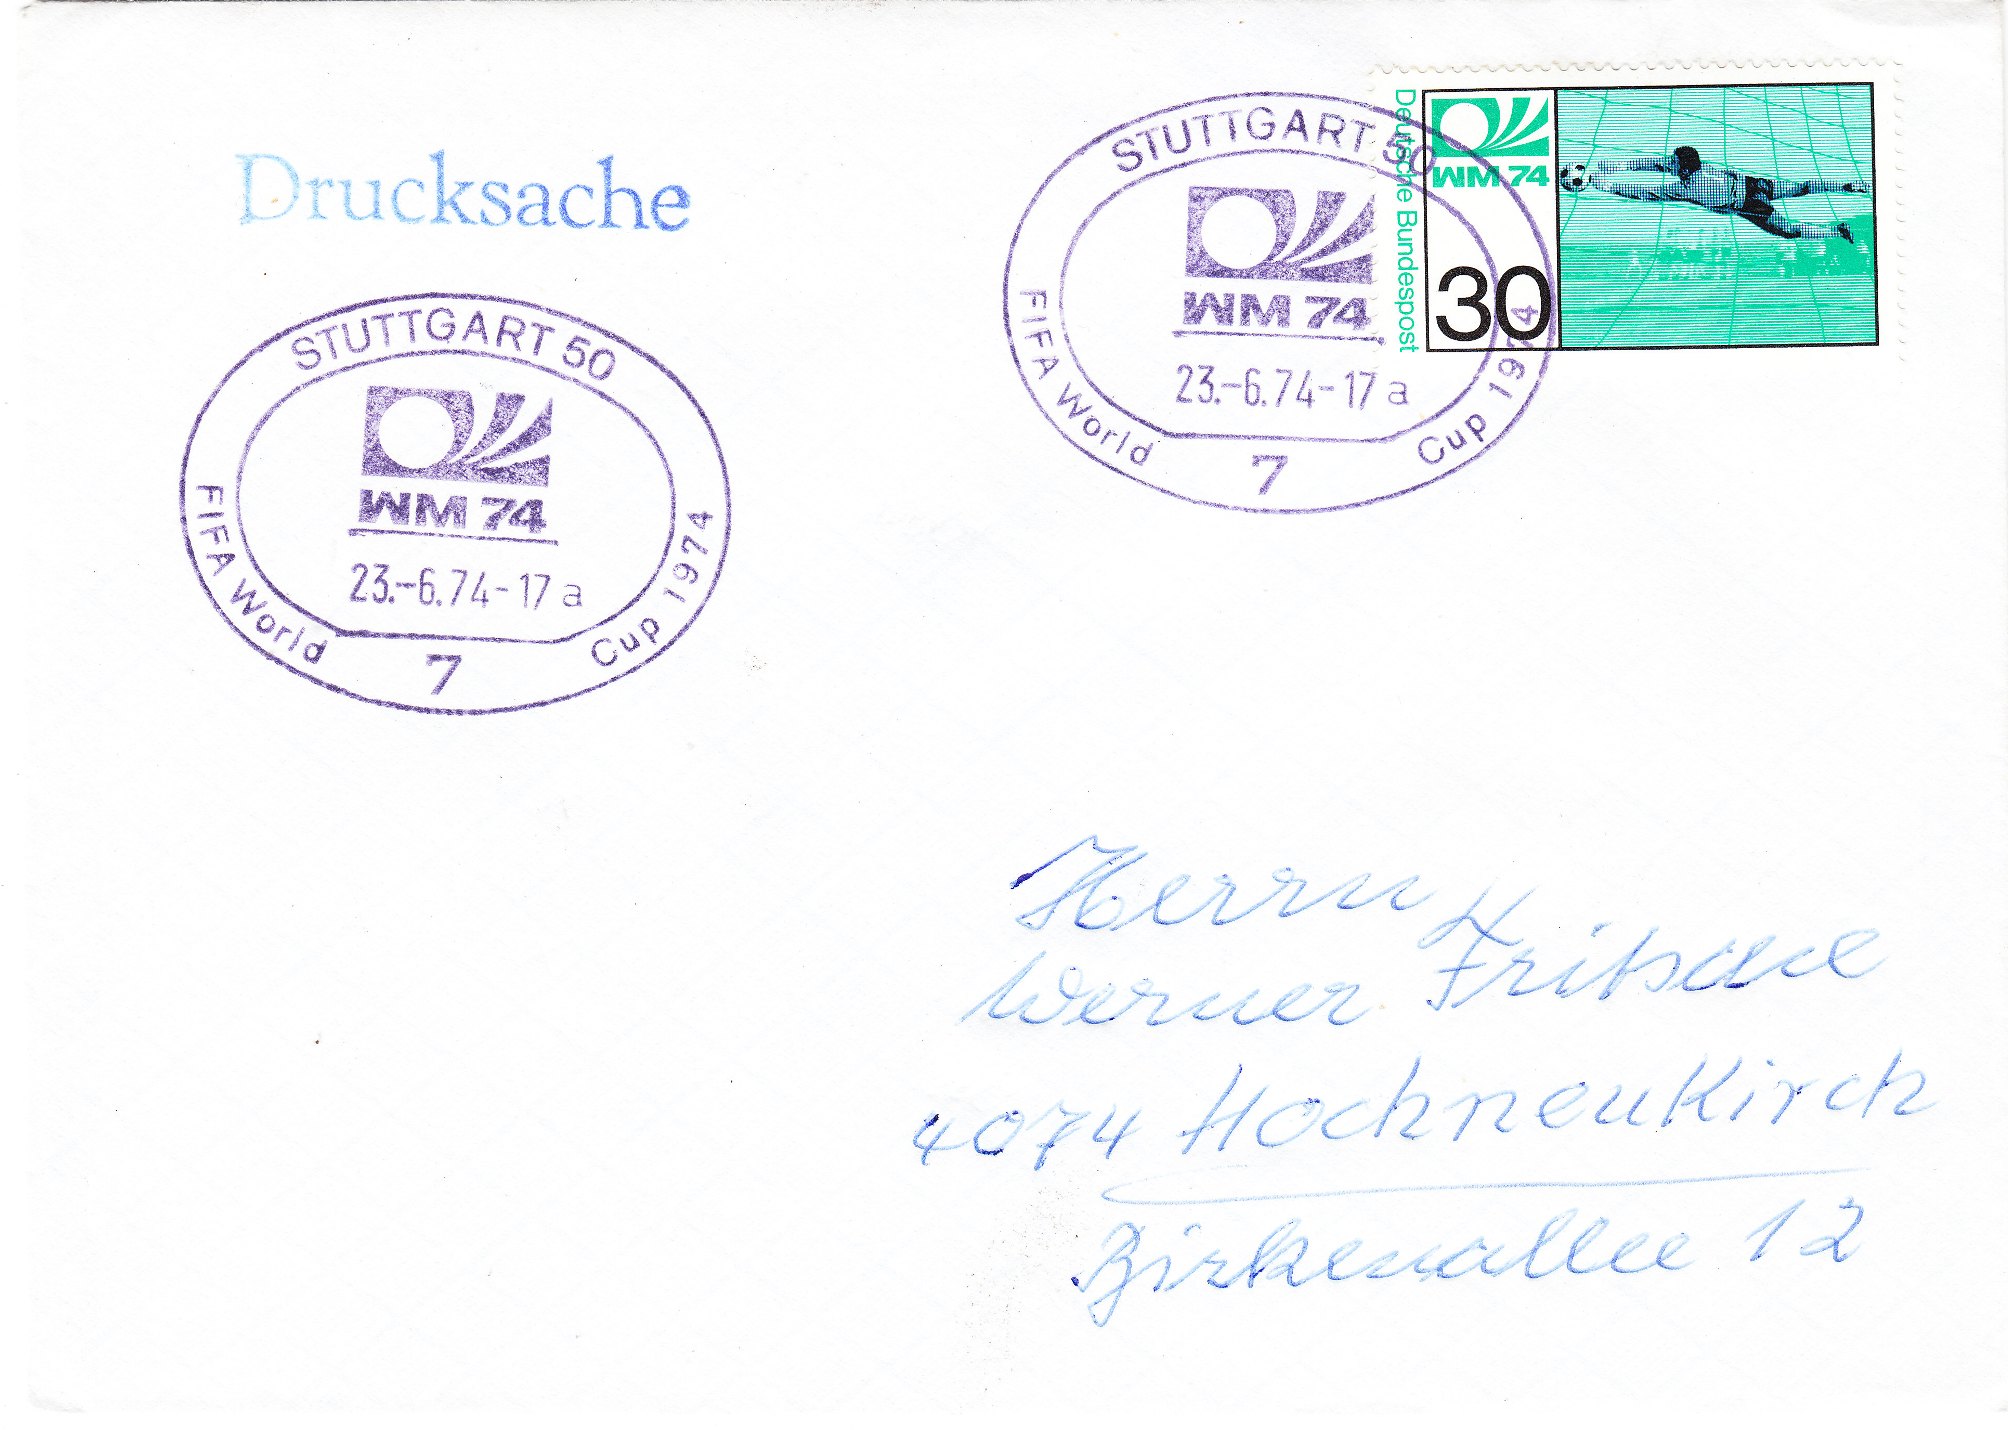 Drucksache
STUTTGART 50
WM 74
23.-6.74-17 a
FIFA World Cup 1974
7
STUTTGART 50
WM 74
23.-6.74-17 a
FIFA World Cup 1974
7
Deutsche Bundespost
WM 74
30
Herrn
Werner Fritsche
4074 Hochneukirch
Birkenallee 12